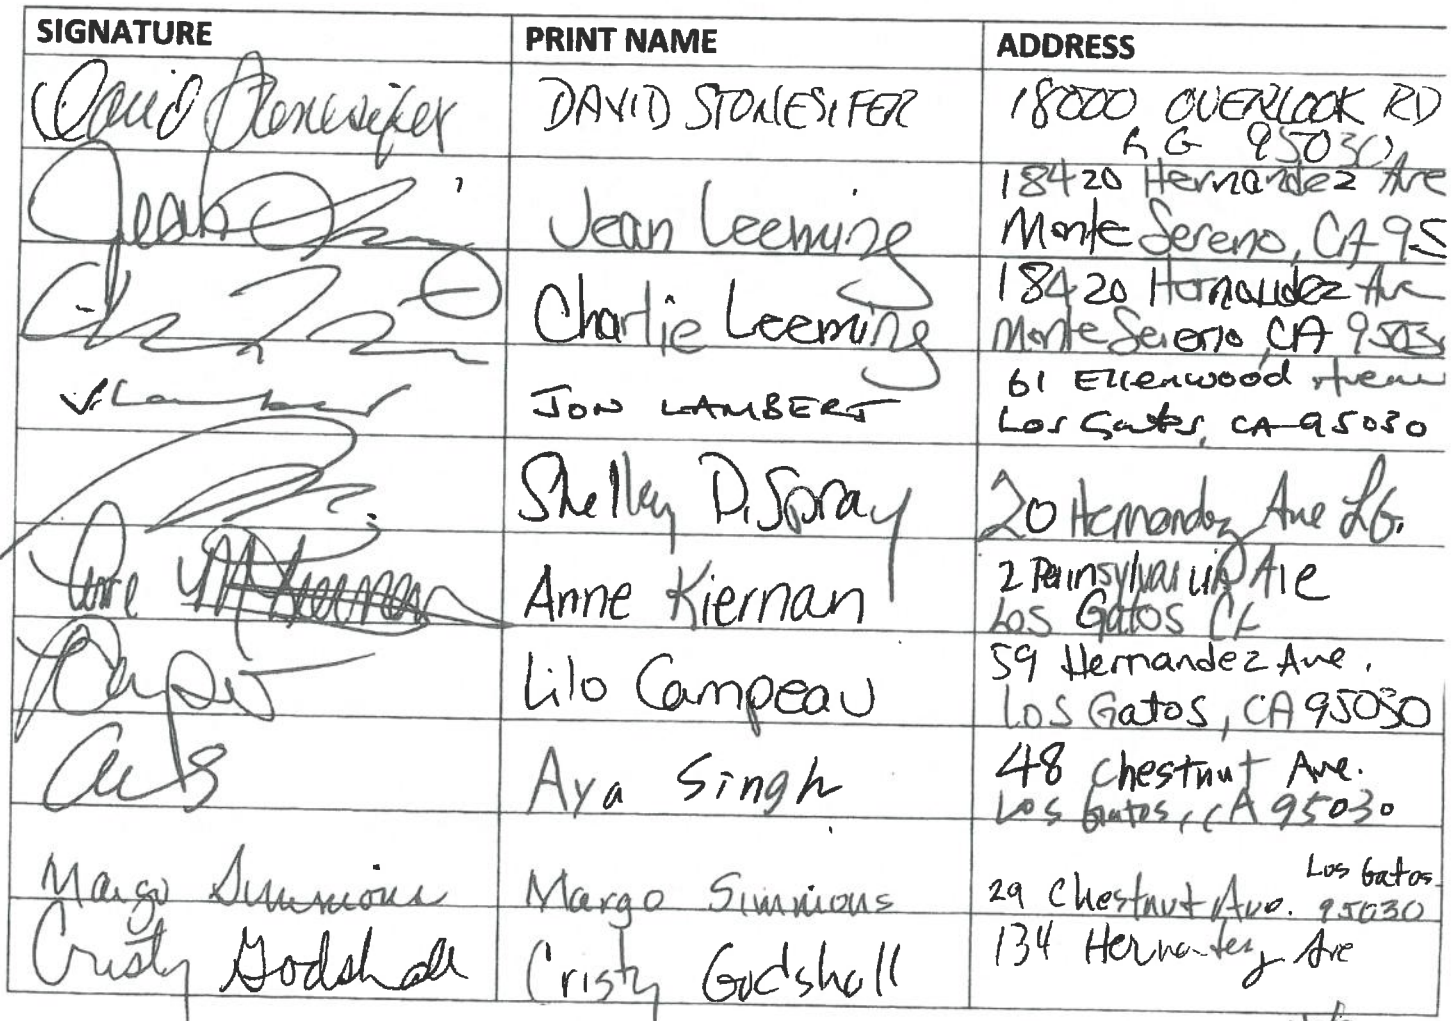 SIGNATURE PRINT NAME ADDRESS
David Stonesifer DAVID STONESIFER 18000 OVERLOOK RD
LG 95030
Jean Leeming 18420 Hernandez Ave
Monte Sereno, CA 95
Charlie Leeming 18420 Hernandez Ave
Monte Sereno, CA 9503
J. Lambert JON LAMBERT 61 Ellenwood Avenue
Los Gatos, CA 95030
Shelley D. Spray 20 Hernandez Ave LG.
Anne Kiernan 2 Pennsylvania Ave
Los Gatos CA
Lilo Campeau 59 Hernandez Ave.
Los Gatos, CA 95030
Aya Singh 48 Chestnut Ave.
Los Gatos, CA 95030
Margo Simmions Margo Simmions 29 Chestnut Ave. Los Gatos
95030
Cristy Godshall Cristy Godshall 134 Hernandez Ave